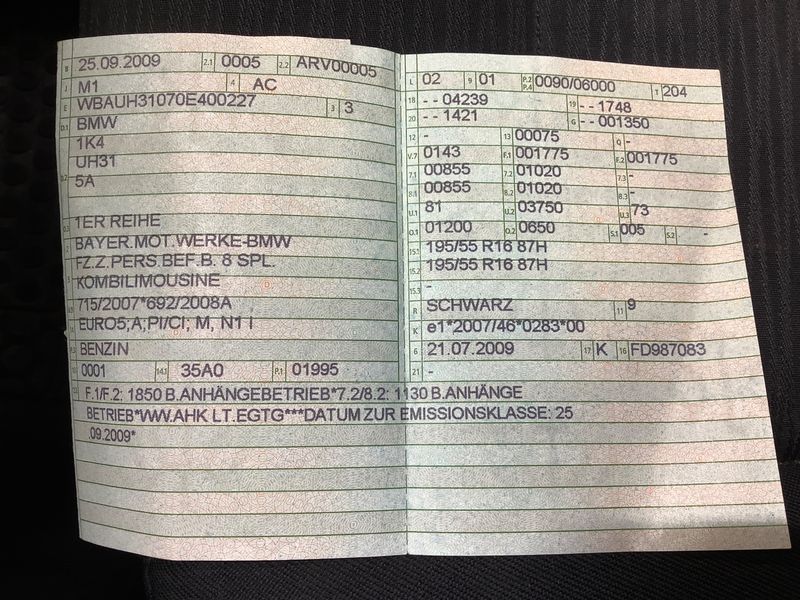 B 25.09.2009 2.1 0005 2.2 ARV00005
J M1 4 AC
E WBAUH31070E400227 3 3
D.1 BMW
1K4
UH31
D.2 5A
D.3 1ER REIHE
2 BAYER.MOT.WERKE-BMW
FZ.Z.PERS.BEF.B. 8 SPL.
5 KOMBILIMOUSINE
V.9 715/2007*692/2008A
14 EURO5;A;PI/CI; M, N1 I
P.3 BENZIN
10 0001 14.1 35A0 P.1 01995
22 F.1/F.2: 1850 B.ANHÄNGEBETRIEB*7.2/8.2: 1130 B.ANHÄNGE
BETRIEB*WW.AHK LT.EGTG***DATUM ZUR EMISSIONSKLASSE: 25
.09.2009*
L 02 9 01 P.2 P.4 0090/06000 T 204
18 --04239 19 --1748
20 --1421 G --001350
12 - 13 00075 Q -
V.7 0143 F.1 001775 F.2 001775
7.1 00855 7.2 01020 7.3 -
8.1 00855 8.2 01020 8.3 -
U.1 81 U.2 03750 U.3 73
O.1 01200 O.2 0650 S.1 005 S.2 -
15.1 195/55 R16 87H
15.2 195/55 R16 87H
15.3 -
R SCHWARZ 11 9
K e1*2007/46*0283*00
6 21.07.2009 17 K 16 FD987083
21 -